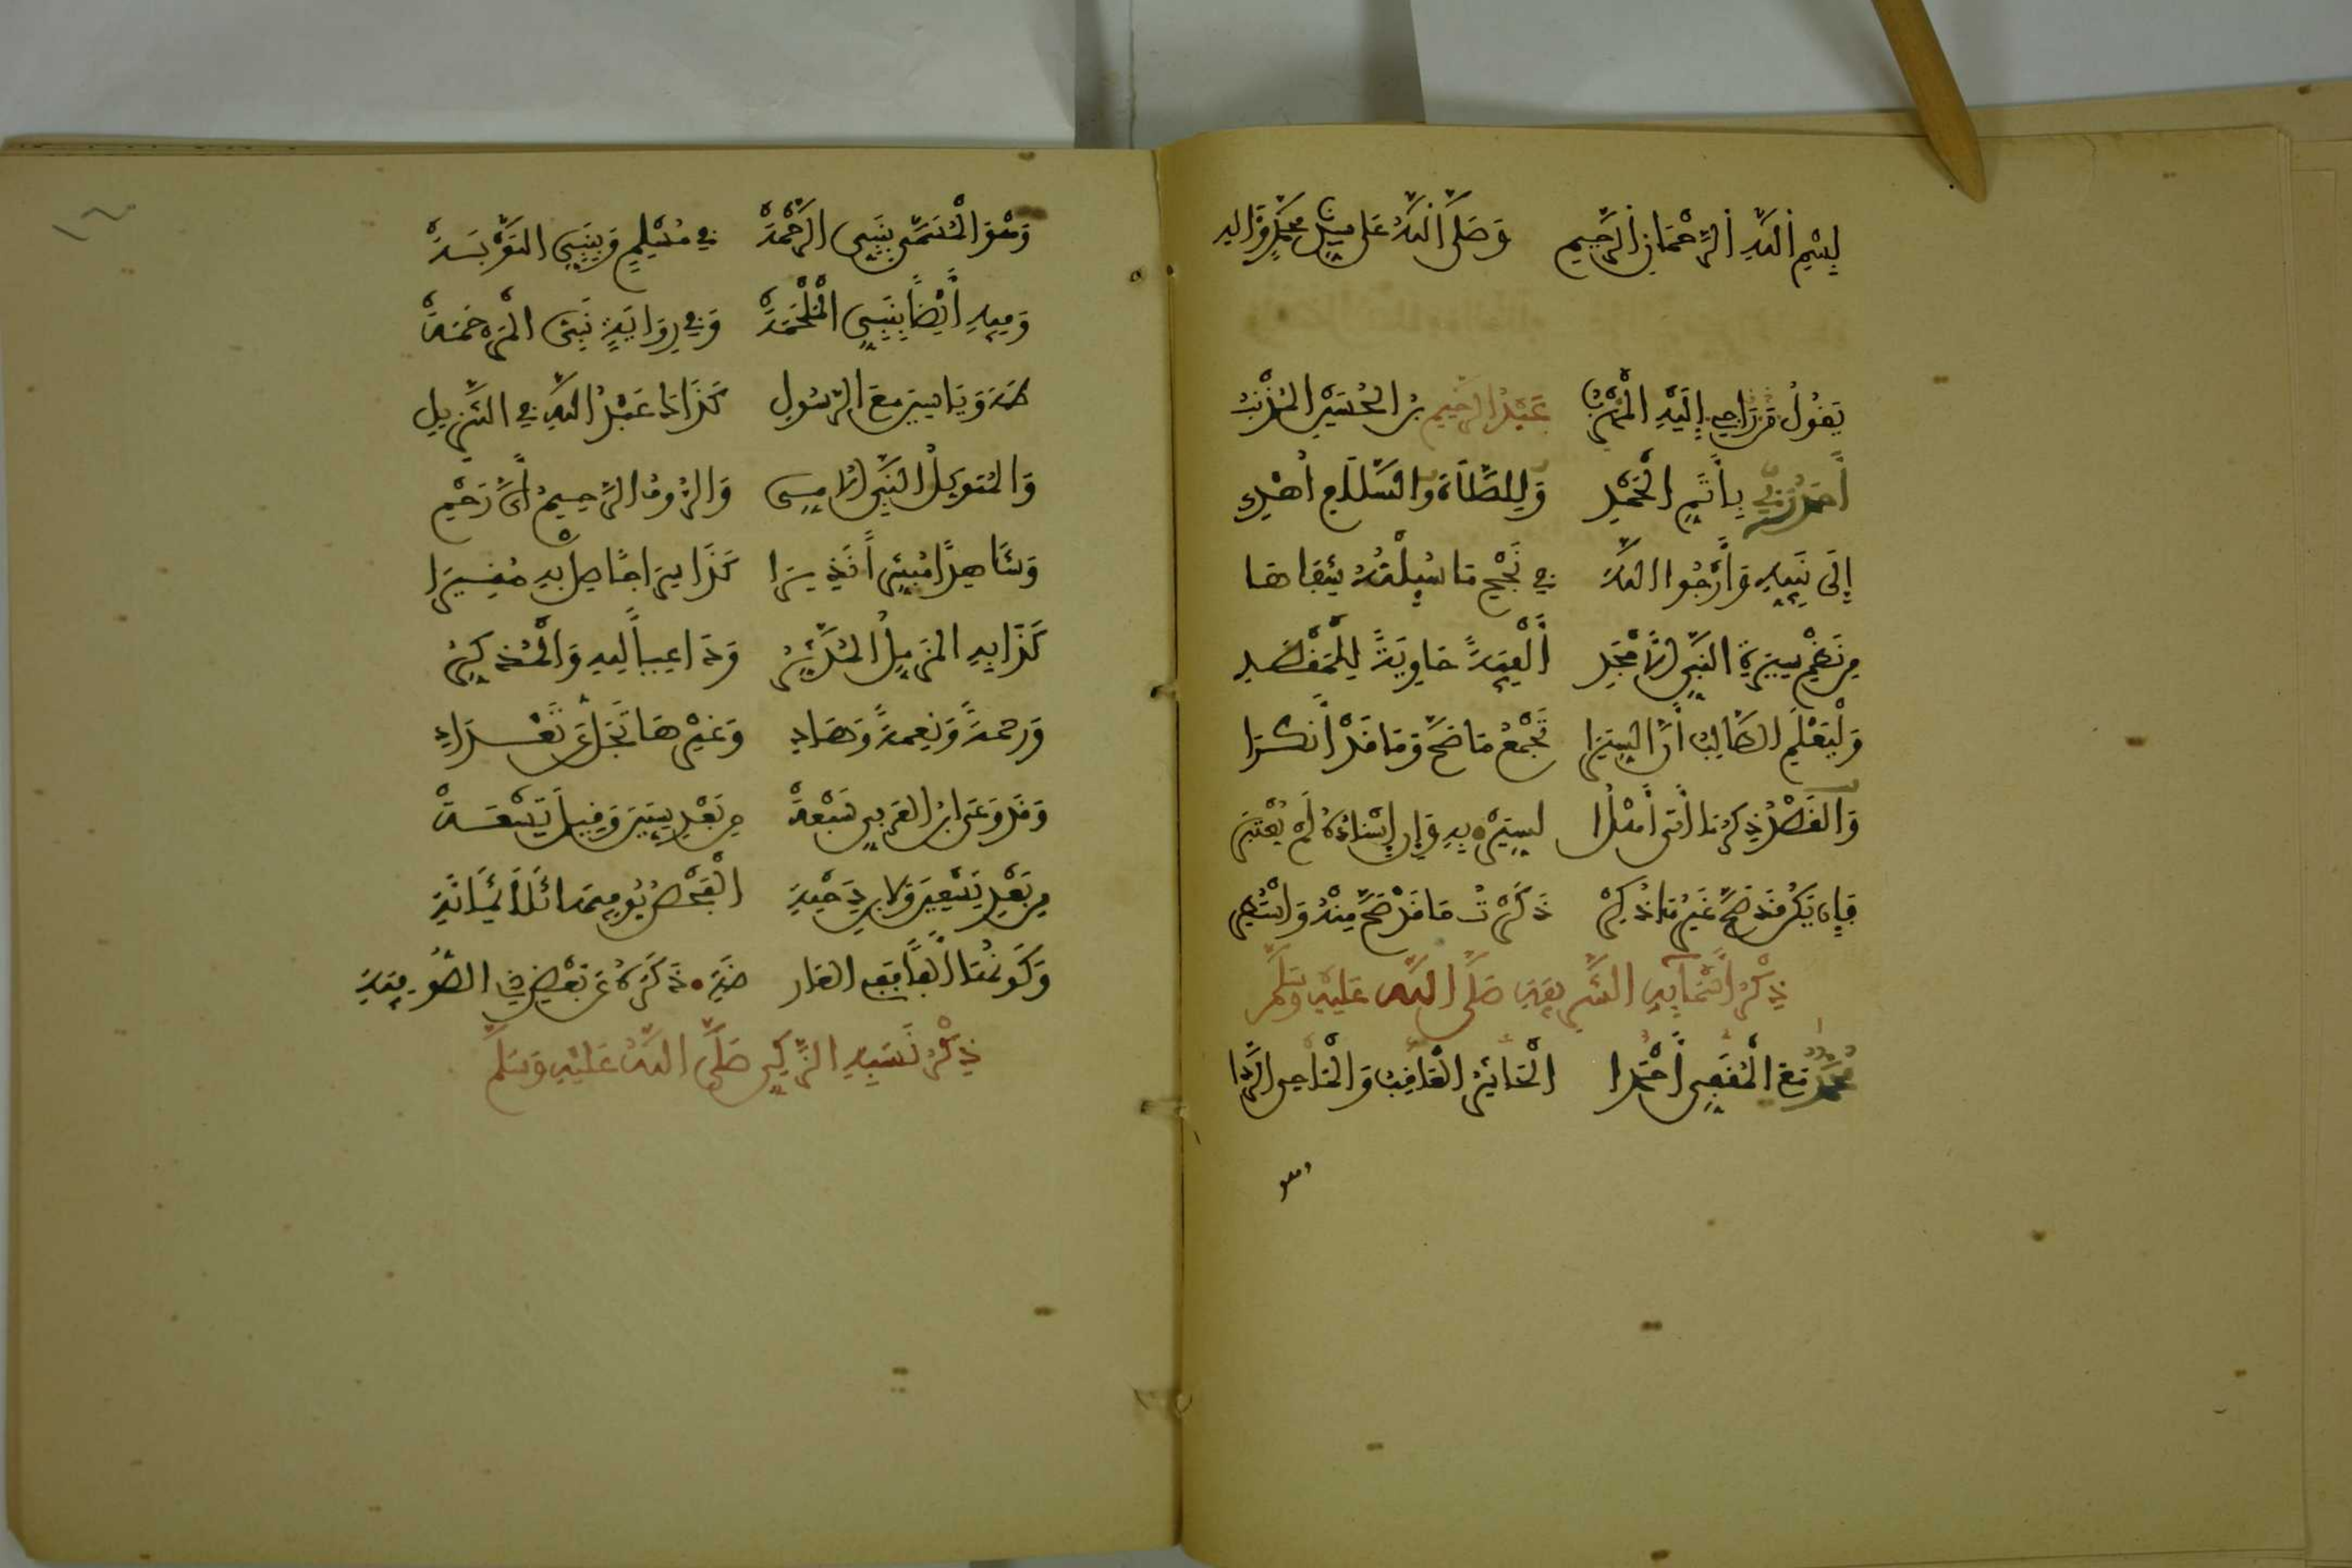 بِسْمِ اللَّهِ الرَّحْمَانِ الرَّحِيمِ وَصَلَّى اللَّهُ عَلَى سيدنا مُحَمَّدٍ وَآلِهِ
يَقُولُ مَنْ رَاجِي إِلَيْهِ الْمَهْرَبُ عَبْدُ الرَّحِيمِ بْنُ الْحُسَيْنِ الْمُذْنِبُ
أَحْمَدُ رَبِّي بِأَتَمِّ الْحَمْدِ وَلِلصَّلَاةِ وَالسَّلَامِ أُهْدِي
إِلَى نَبِيِّهِ وَأَرْجُوا اللَّهَ فِي نَجْحِ مَا سُئِلْتُهُ شِفَاهَا
مِنْ نَظْمِ سِيرَةِ النَّبِيِّ الْأَمْجَدِ أَلْفِيَّةً حَاوِيَةً لِلْمَقْصَدِ
وَلْيَعْلَمِ الطَّالِبُ أَنَّ السِّيَرَا تَجْمَعُ مَا صَحَّ وَمَا قَدْ أُنْكِرَا
وَالْقَصْدُ ذِكْرُ مَا أَتَى أَهْلُ السِّيَرْ بِهِ وَإِنْ إِسْنَادُهُ لَمْ يُعْتَبَرْ
فَإِنْ يَكُنْ قَدْ صَحَّ غَيْرُ مَا ذُكِرْ ذَكَرْتُ مَا قَدْ صَحَّ مِنْهُ وَاسْتُطِرْ
ذِكْرُ أَسْمَائِهِ الشَّرِيفَةِ صَلَّى اللَّهُ عَلَيْهِ وَسَلَّمَ
مُحَمَّدٌ مَعَ الْمُقَفِّي أَحْمَدَا الْحَاشِرُ الْعَاقِبُ وَالْمَاحِي الرَّدَا
وهو
وَهْوَ الْمُسَمَّى بِنَبِيِّ الرَّحْمَةْ فِي مُسْلِمٍ وَبِنَبِيِّ التَّوْبَةْ
وَفِيهِ أَيْضًا بِنَبِيِّ الْمَلْحَمَةْ وَفِي رِوَايَةٍ نَبِيُّ الْمَرْحَمَةْ
طَهَ وَيَاسِينُ مَعَ الرَّسُولِ كَذَاكَ عَبْدُ اللَّهِ فِي التَّنْزِيلِ
وَالْمُتَوَكِّلُ النَّبِيُّ الْأُمِّي وَالرَّؤُفُ الرَّحِيمُ أَيُّ رُحْمِ
وَشَاهِدًا مُبَشِّرًا نَذِيرَا كَذَا سِرَاجًا صِلْ بِهِ مُنِيرَا
كَذَا بِهِ الْمُزَّمِّلُ الْمُدَّثِّرُ وَدَاعِيًا لِلَّهِ وَالْمُذَكِّرُ
وَرَحْمَةً وَنِعْمَةً وَهَادِ وَغَيْرُهَا تَجِلُّ عَنْ تَعْدَادِ
وَقَدْ وَعَى ابْنُ الْعَرَبِي سَبْعَةْ مِنْ بَعْدِ سِتِّينَ وَقِيلَ تِسْعَةْ
مِنْ بَعْدِ تِسْعِينَ وَلِابْنِ دِحْيَةِ الْفَحْصُ يُوفِيهَا ثَلَاثَمِائَةِ
وَكَوْنُهَا أَلْفًا فَفِي الْعَارِضَةِ ذَكَرَهُ عَنْ بَعْضِ ذِي الصُّوفِيَةِ
ذِكْرُ نَسَبِهِ الزَّكِيِّ صَلَّى اللَّهُ عَلَيْهِ وَسَلَّمَ